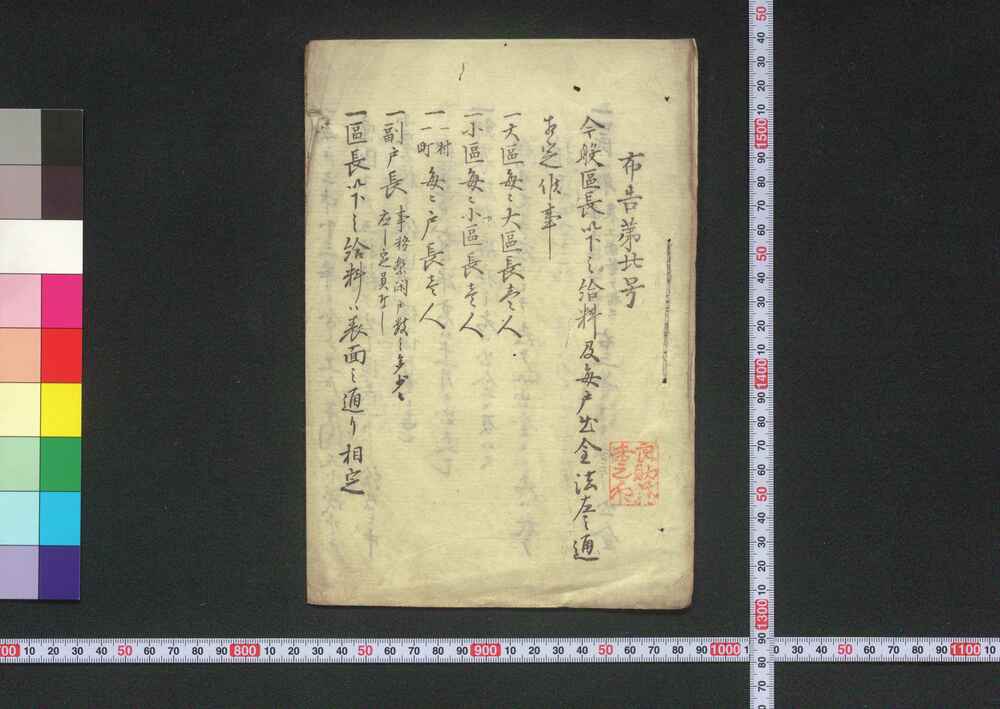 布告第廿号
今般區長以下之給料及毎戸出金法左之通
相定候事
一大區毎ニ大區長壱人
一小區毎ニ小區長壱人
一一村一町毎ニ戸長壱人
一副戸長 事務繁閑戸数之多少ニ
応し定員なし
一區長以下之給料ハ表面之通り相定